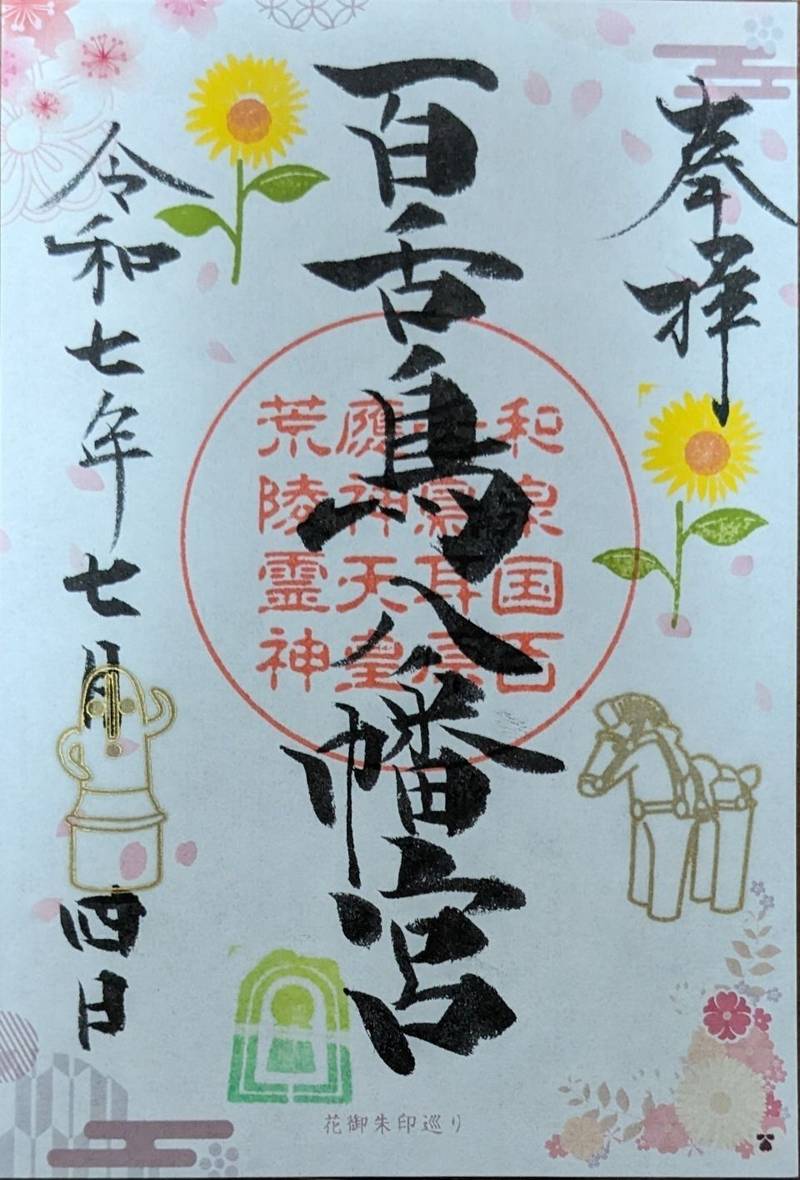 奉拝
百舌鳥八幡宮
和泉国百
應神天皇
荒陵霊神
令和七年七月四日
花御朱印巡り